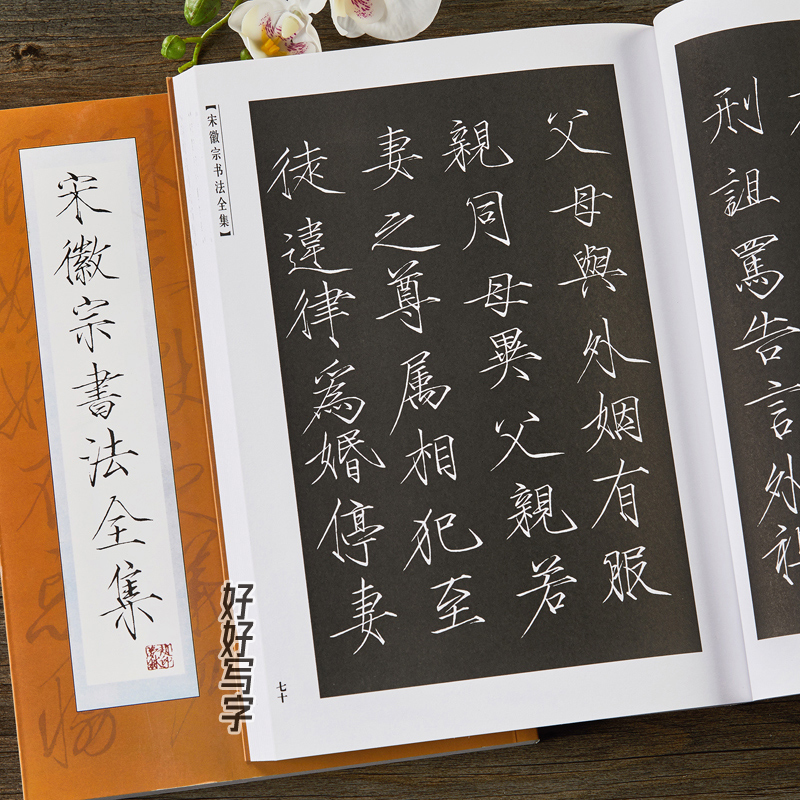 宋徽宗書法全集
好好写字
【宋徽宗书法全集】
父母與外姻有服
親同母異父親若
妻之尊属相犯至
徒違律爲婚停妻
七十
刑詛罵告言外祖